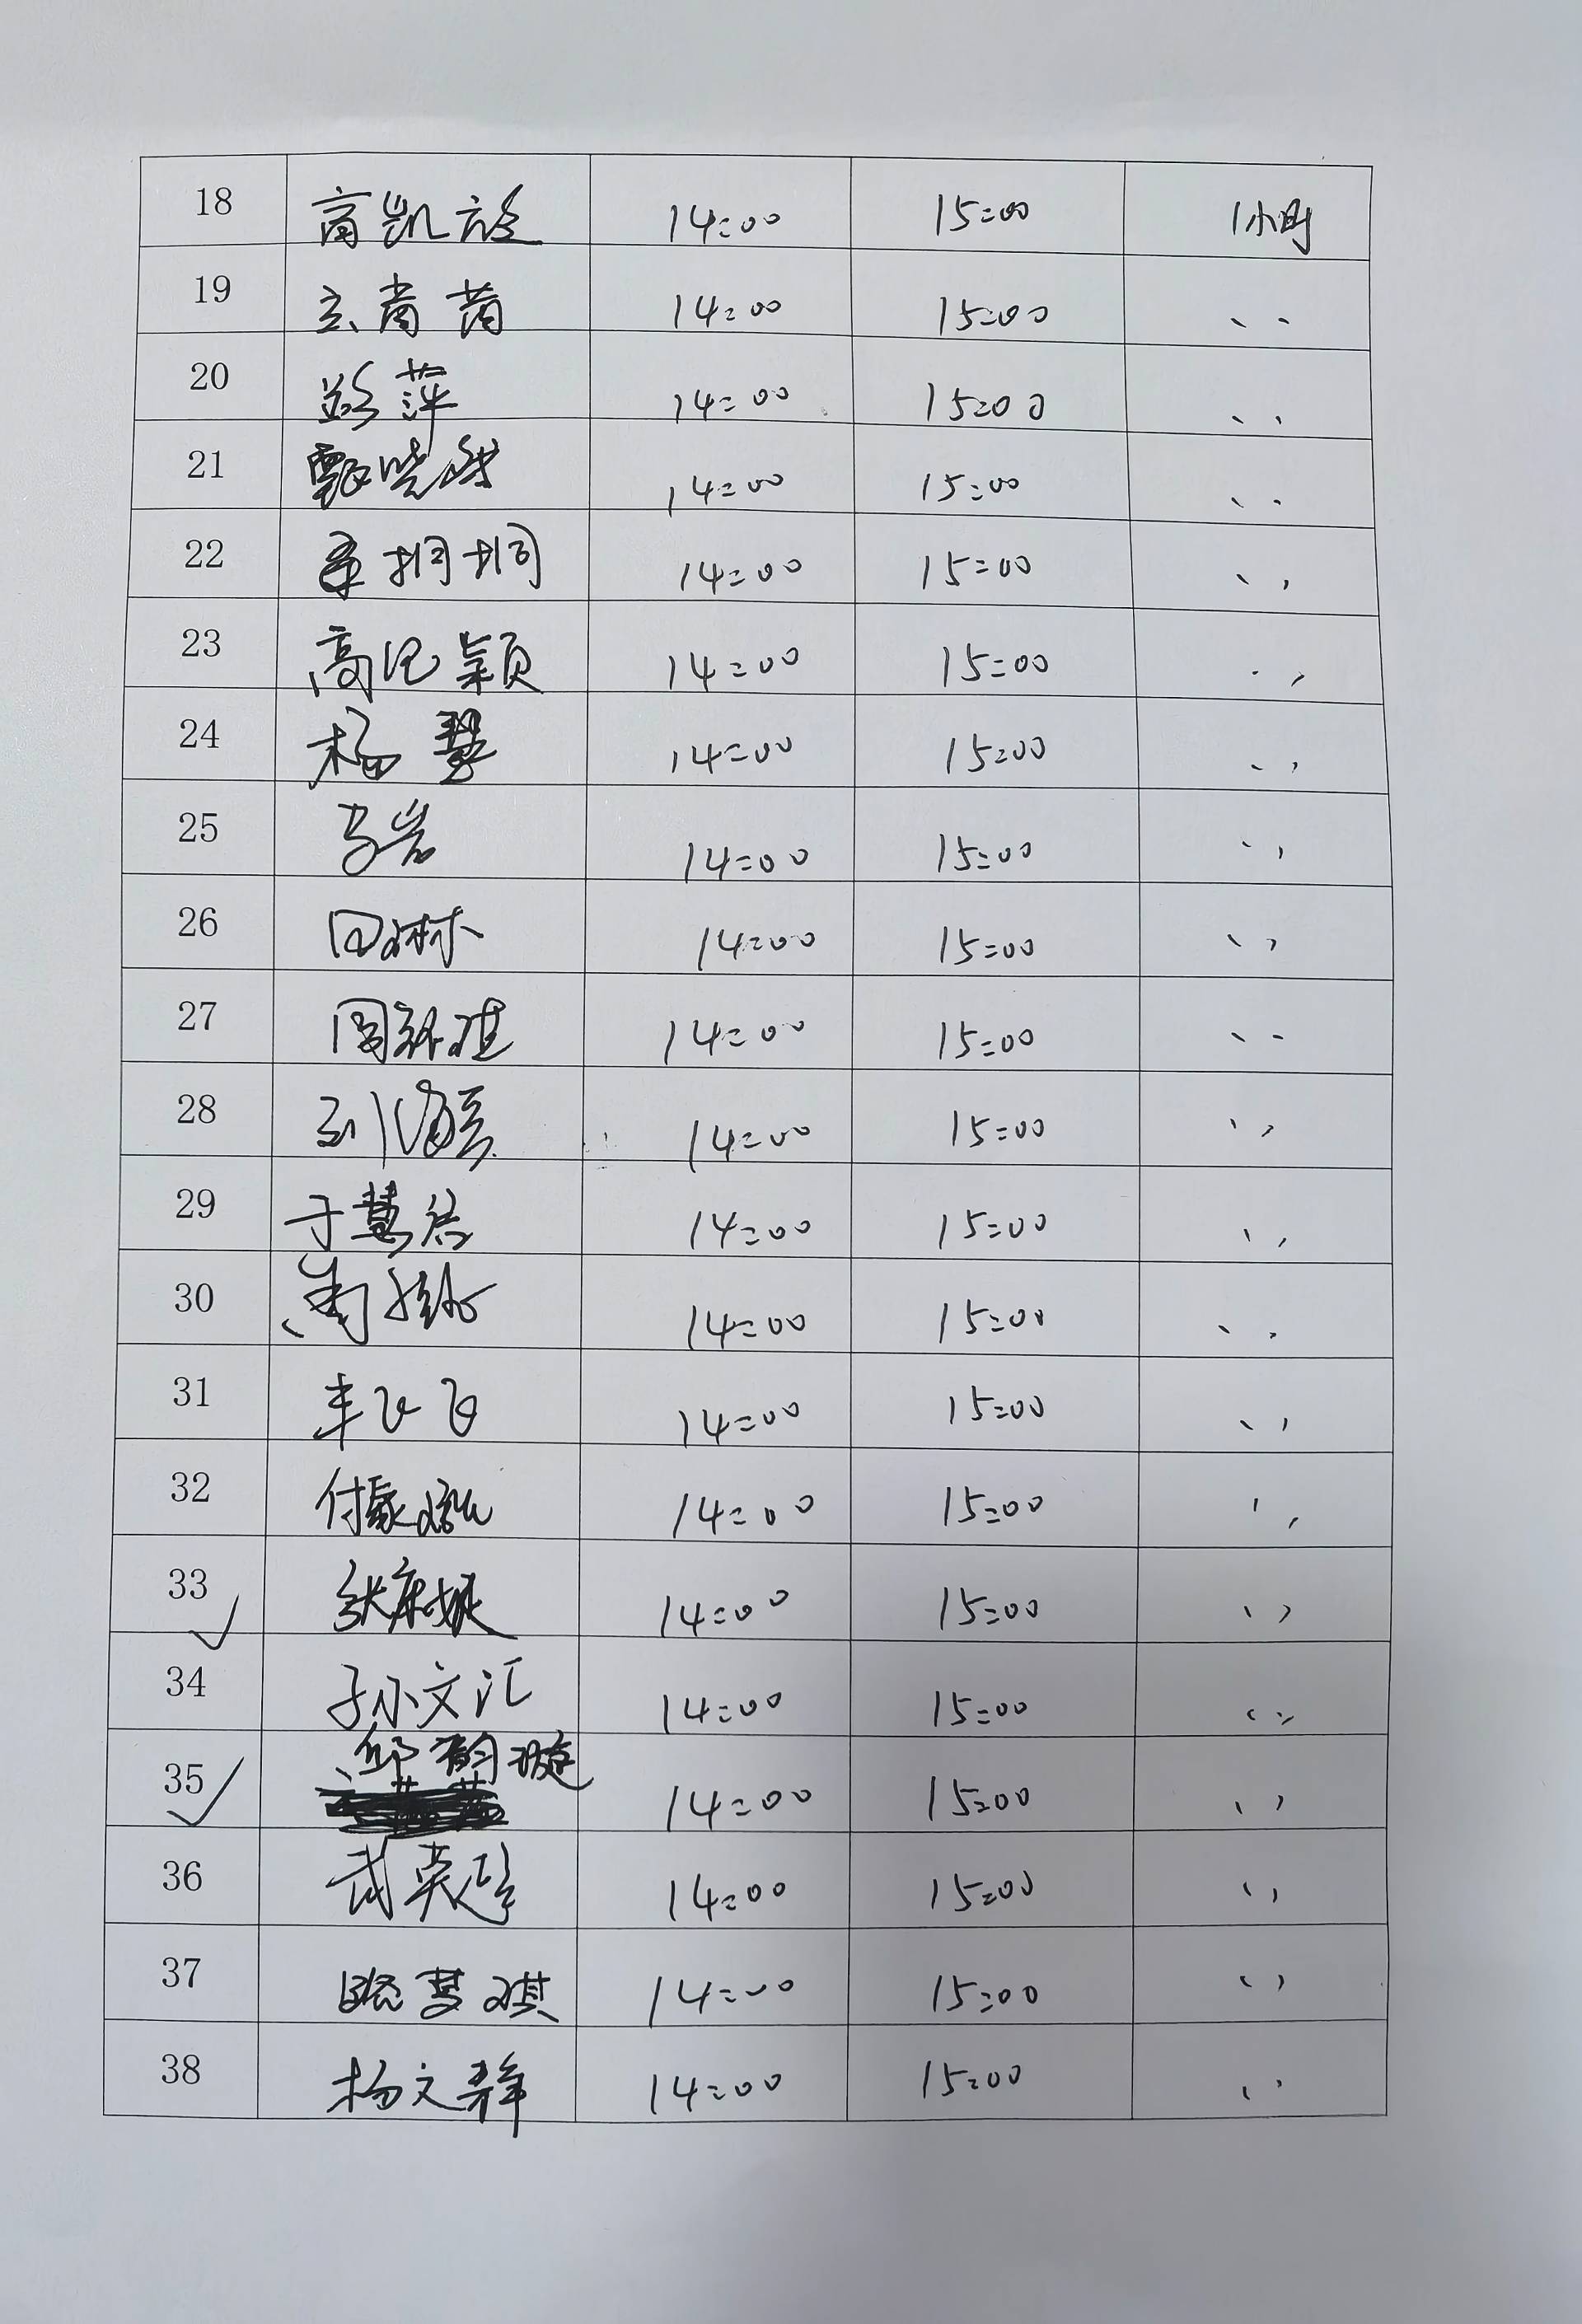 18 高凯旋 14:00 15:00 1小时
19 14:00 15:00 、、
20 萍 14:00 15:00 、、
21 甄晓 14:00 15:00 、、
22 14:00 15:00 、、
23 高 颖 14:00 15:00 、、
24 杨慧 14:00 15:00 、、
25 马岩 14:00 15:00 、、
26 田琳 14:00 15:00 、、
27 周 14:00 15:00 、、
28 14:00 15:00 、、
29 于慧 14:00 15:00 、、
30 14:00 15:00 、、
31 车飞飞 14:00 15:00 、、
32 付家 14:00 15:00 、、
33 ✓ 张 14:00 15:00 、、
34 孙文汇 14:00 15:00 、、
35 ✓ 邱韵璇 14:00 15:00 、、
36 武英 14:00 15:00 、、
37 梦琪 14:00 15:00 、、
38 杨文静 14:00 15:00 、、